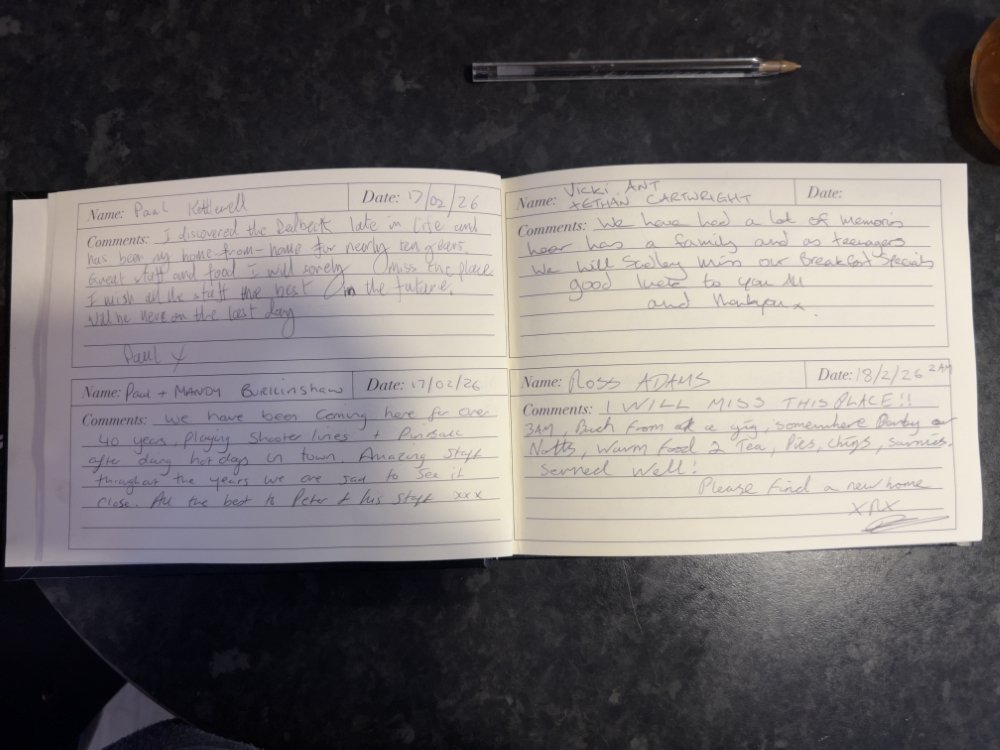 Name: Paul Kettlewell Date: 17/02/26
Comments: I discovered the late in life and
has been my home-from-home for nearly ten years.
Great staff and food I will sorely miss the place
I wish all the staff the best in the future.
Will be here on the last day
Paul X
Name: Paul + MANDY BURKINSHAW Date: 17/02/26
Comments: We have been coming here for over
40 years, playing Shooter lines + Pinball
after days in town. Amazing staff
throughout the years we are sad to see it
close. All the best to Peter & his staff xxx
Name: VICKI, ANT
ETHAN CARTWRIGHT Date:
Comments: We have had a lot of memoris
hear has a family and as teenagers
We will Sadley miss our Breakfast Specials
good to you All
and thankyou x.
Name: ROSS ADAMS Date: 18/2/26 2AM
Comments: I WILL MISS THIS PLACE!!
3AM, Back from a gig, somewhere Derby or
Notts, Warm food 2 Tea, Pies, chips, sarnies.
Served Well!
Please find a new home
XRX